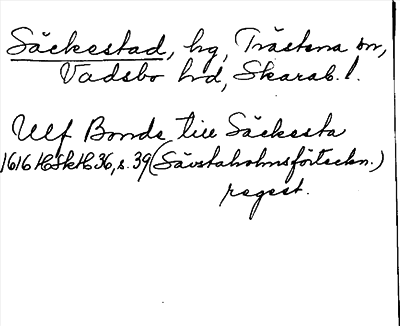 Säckestad, hg, Trästena sn,
Vadsbo hd, Skarab. l.
Ulf Bonde till Säckesta
1616 HSkH 36, s. 39 (Sävstaholmsförteckn.)
regest.